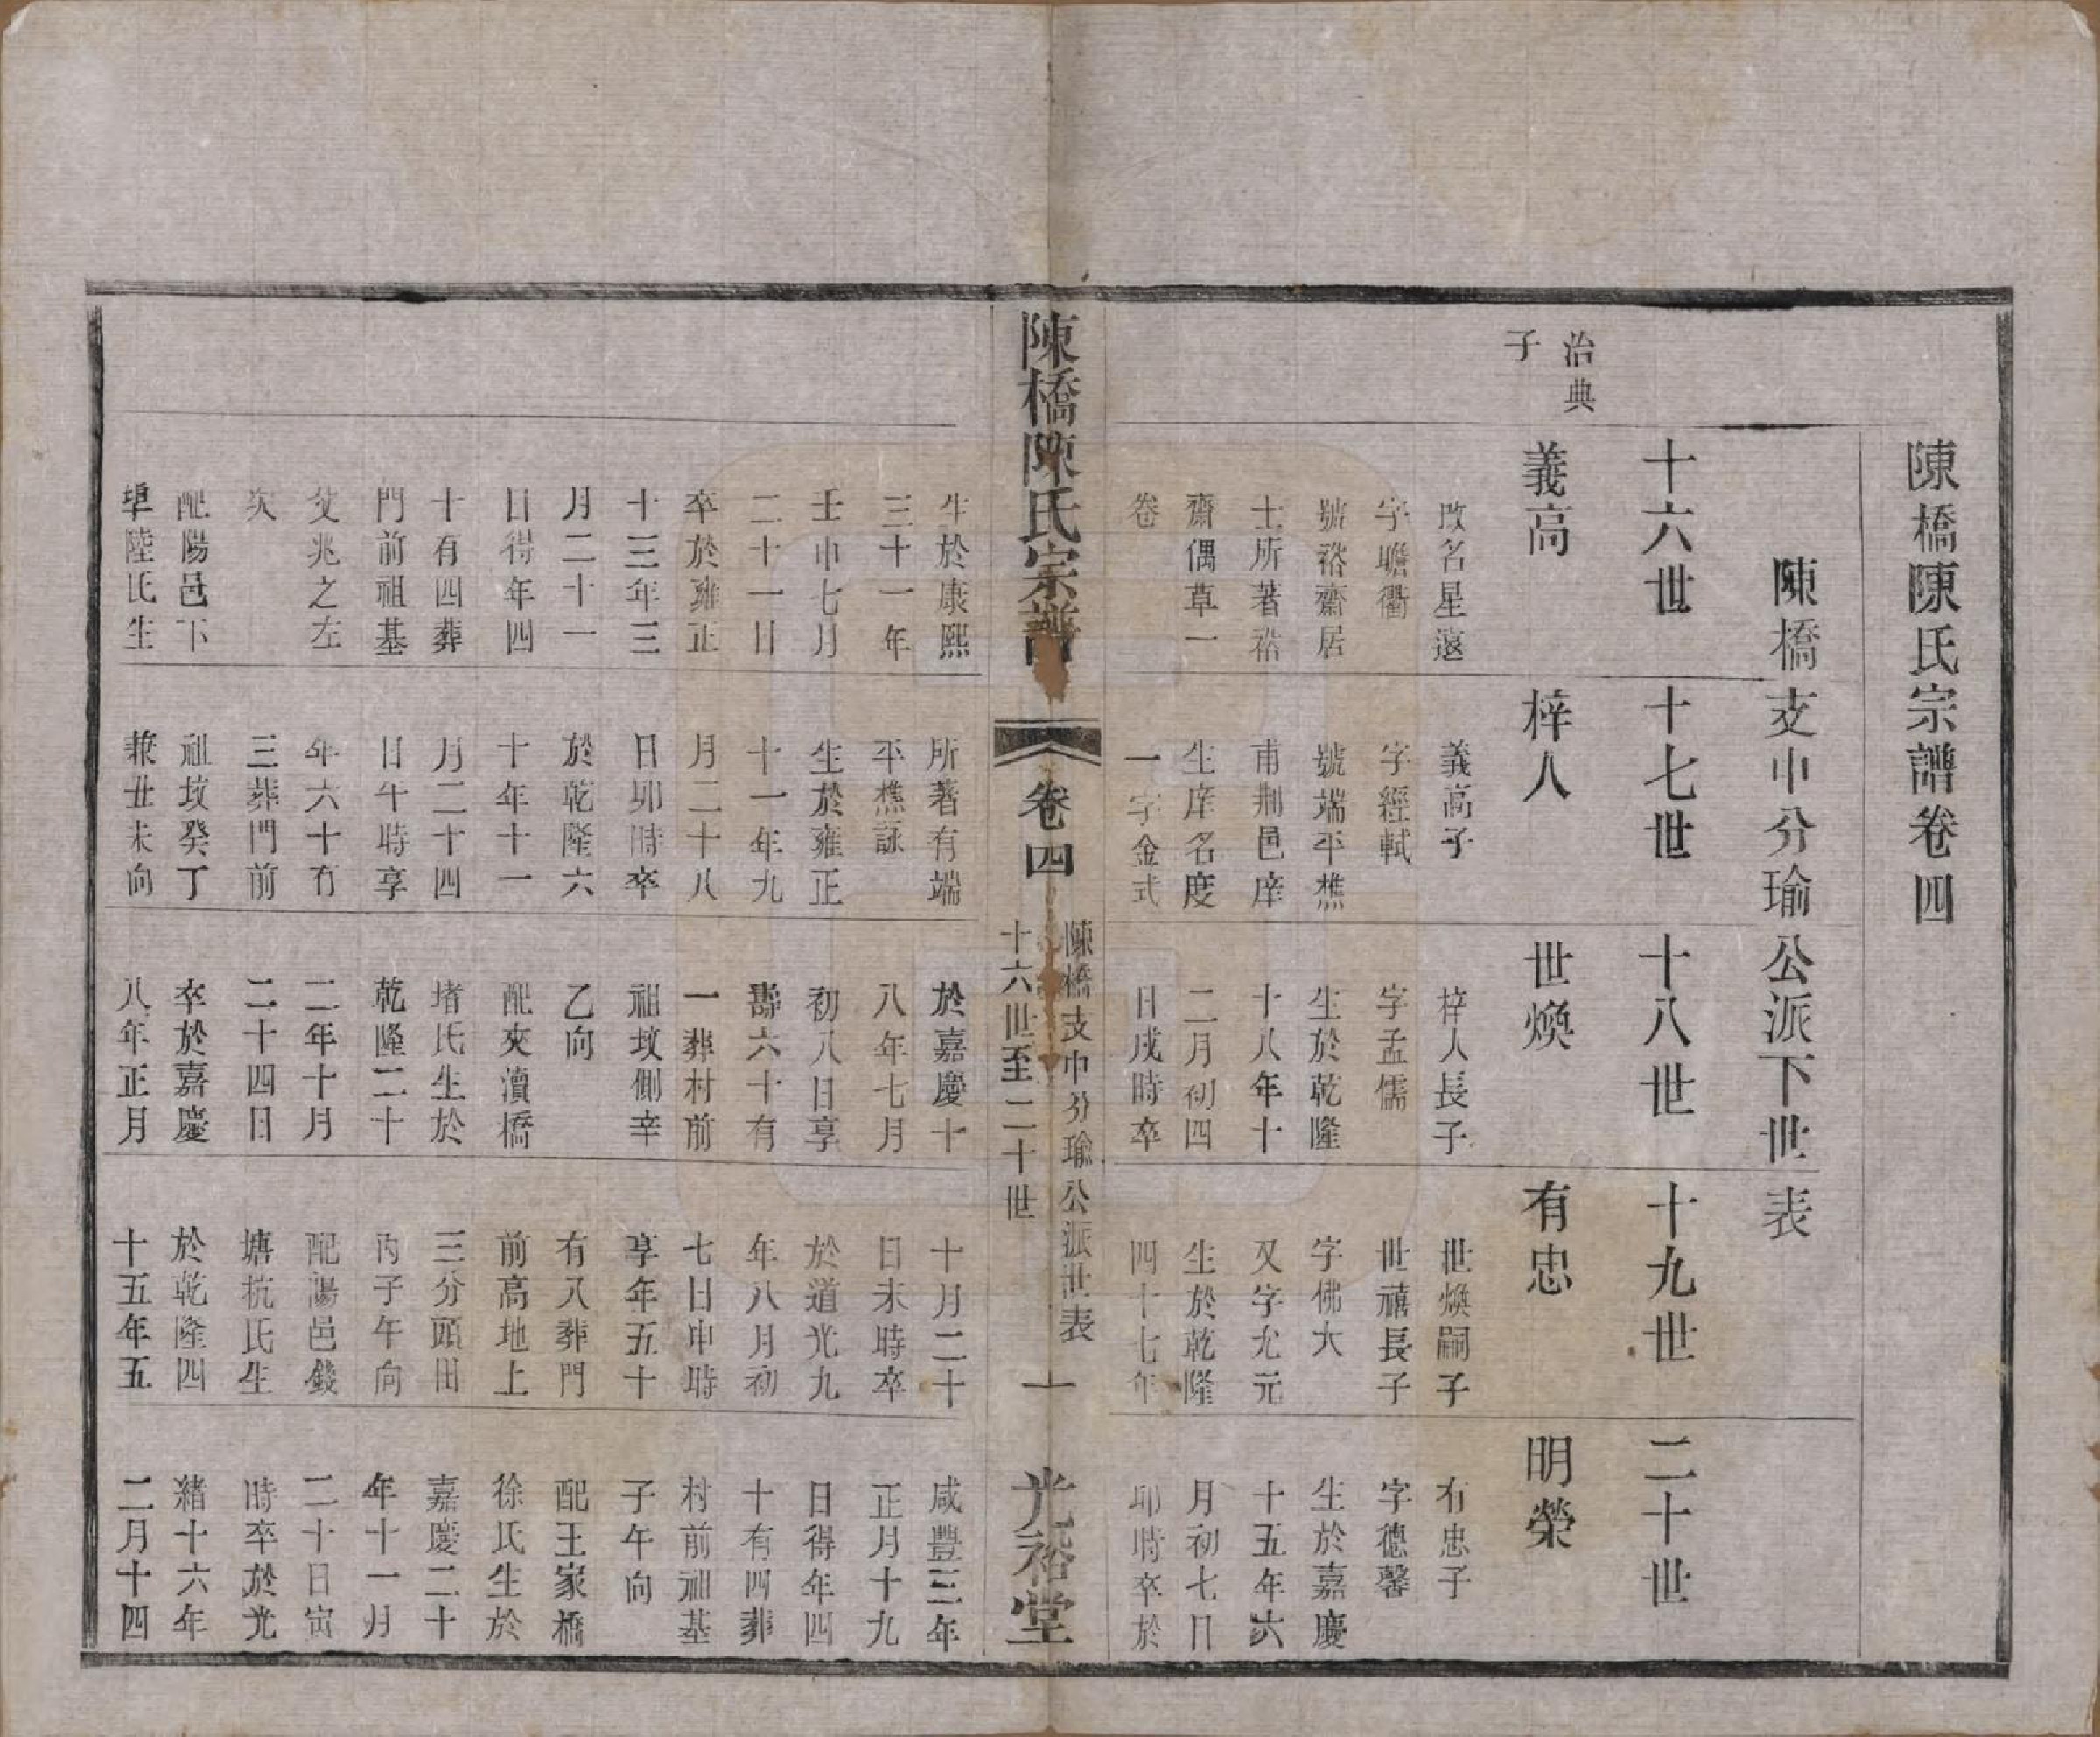 陳橋陳氏宗譜卷四
陳橋支中分瑜公派下世表
十六世
十七世
十八世
十九世
二十世
治典
子
義高
改名星遠
字瞻衢
號裕齋居
士所著裕
齋偶草一
卷
生於康熙
三十一年
壬申七月
二十一日
卒於雍正
十三年三
月二十一
日得年四
十有四葬
門前祖基
父兆之左
次
配陽邑下
埠陸氏生
梓人
義高子
字經軾
號端平樵
甫荆邑庠
生庠名度
一字金式
所著有端
平樵詠
生於雍正
十一年九
月二十八
日卯時卒
於乾隆六
十年十一
月二十四
日午時享
年六十有
三葬門前
祖坟癸丁
兼丑未向
世煥
梓人長子
字孟儒
生於乾隆
十八年十
二月初四
日戌時卒
於嘉慶十
八年七月
初八日享
壽六十有
一葬村前
祖坟側辛
乙向
配夾瀆橋
堵氏生於
乾隆二十
二年十月
二十四日
卒於嘉慶
八年正月
有忠
世煥嗣子
世禧長子
字佛大
又字允元
生於乾隆
四十七年
十月二十
日未時卒
於道光九
年八月初
七日申時
享年五十
有八葬門
前高地上
三分頭田
丙子午向
配陽邑錢
塘杭氏生
於乾隆四
十五年五
明榮
有忠子
字德馨
生於嘉慶
十五年六
月初七日
卯時卒於
咸豐三年
正月十九
日得年四
十有四葬
村前祖基
子午向
配王家橋
徐氏生於
嘉慶二十
年十一月
二十日寅
時卒於光
緒十六年
二月十四
陳橋陳氏宗譜
卷四
陳橋支中分瑜公派世表
十六世至二十世
一
光裕堂